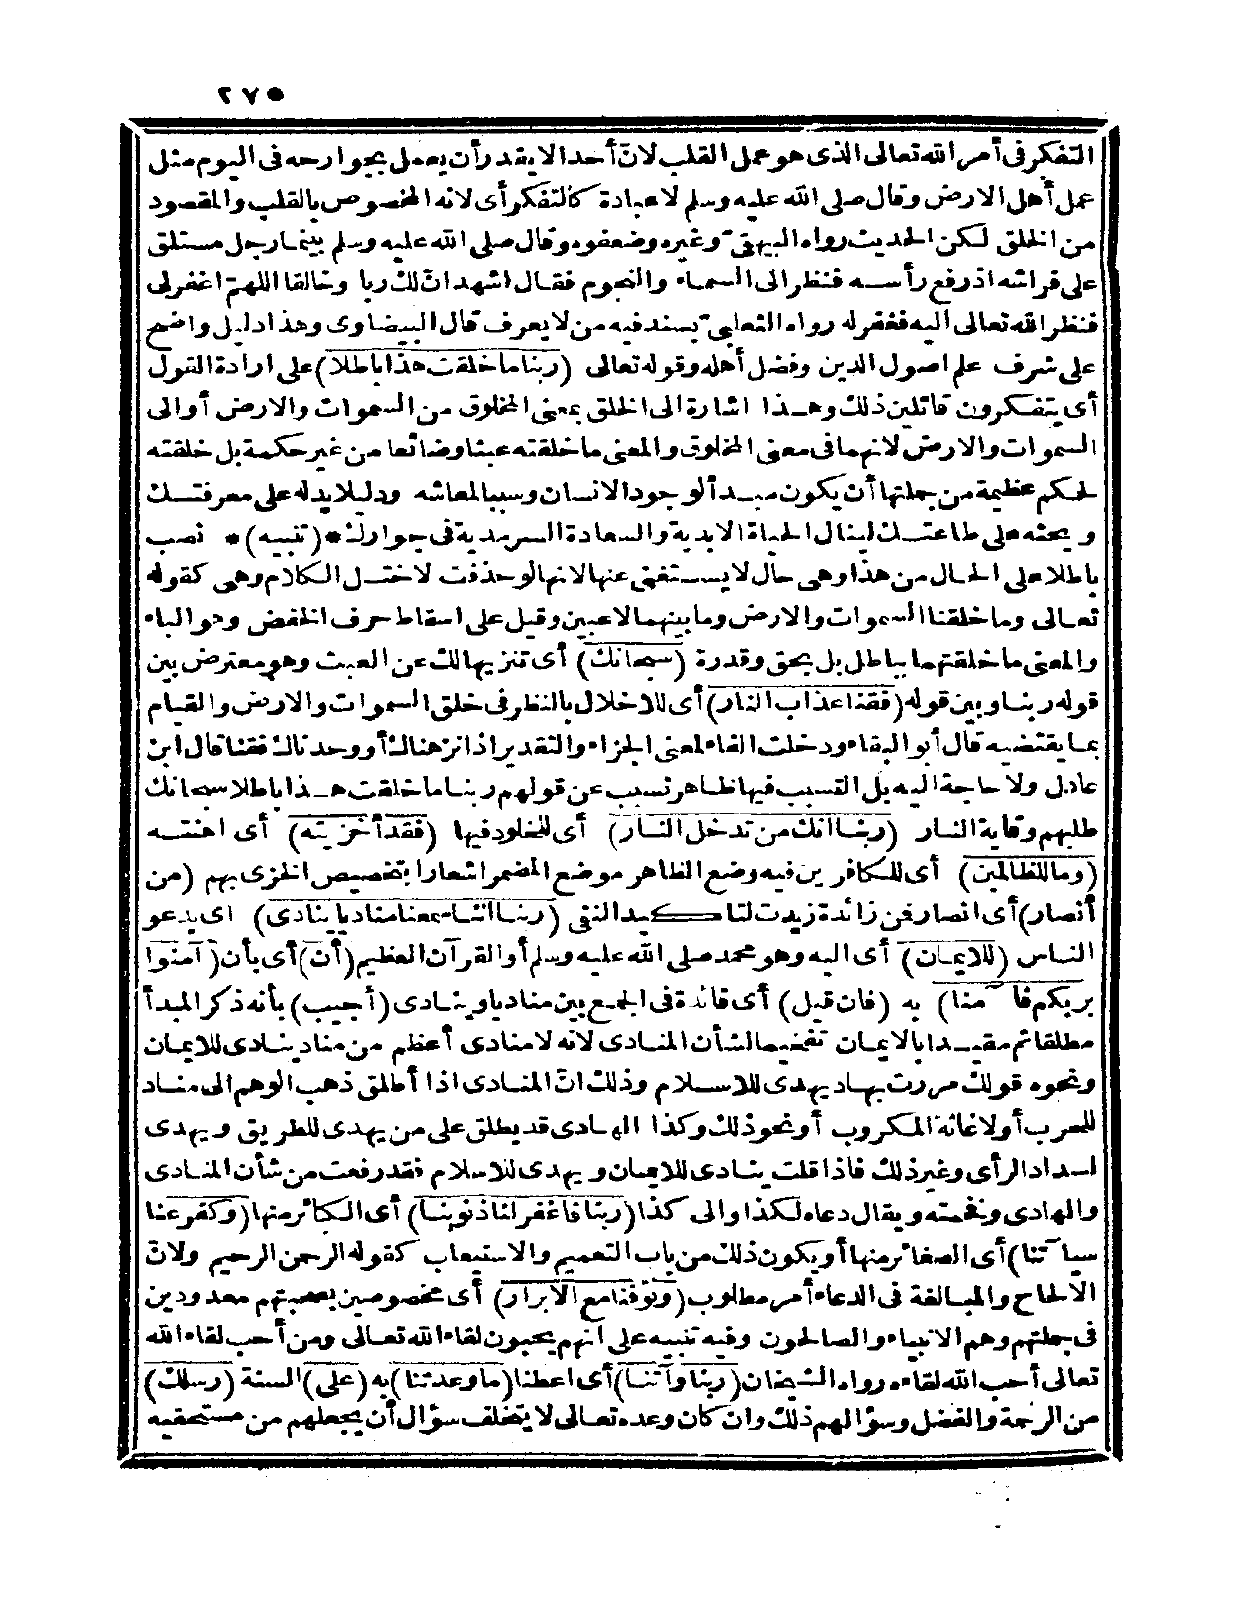 ٢٧٥
التفكر فى أمر الله تعالى الذى هو عمل القلب لانّ أحدا لا يقدر أن يعمل بجوارحه فى اليوم مثل
عمل أهل الارض وقال صلى الله عليه وسلم لا عبادة كالتفكر أى لانه المخصوص بالقلب والمقصود
من الخلق لكن الحديث رواه البيهقىّ وغيره وضعفوه وقال صلى الله عليه وسلم بينما رجل مستلق
على فراشه اذ رفع رأسه فنظر الى السماء والنجوم فقال اشهد انّ لك ربا وخالقا اللهمّ اغفر لى
فنظر الله تعالى اليه فغفر له رواه الثعلبىّ بسند فيه من لا يعرف قال البيضاوى وهذا دليل واضح
على شرف علم اصول الدين وفضل أهله وقوله تعالى (ربنا ما خلقت هذا باطلا) على ارادة القول
أى يتفكرون قائلين ذلك وهذا اشارة الى الخلق بمعنى المخلوق من السموات والارض أو الى
السموات والارض لانهما فى معنى المخلوق والمعنى ما خلقته عبثا وضائعا من غير حكمة بل خلقته
لحكم عظيمة من جملتها أن يكون مبدأ لوجود الانسان وسببا لمعاشه ودليلا يدله على معرفتك
ويحثه على طاعتك لينال الحياة الابدية والسعادة السرمدية فى جوارك *(تنبيه)* نصب
باطلا على الحال من هذا وهى حال لا يستغنى عنها لانها لو حذفت لاختل الكلام وهى كقوله
تعالى وما خلقنا السموات والارض وما بينهما لاعبين وقيل على اسقاط حرف الخفض وهو الباء
والمعنى ما خلقتهما بباطل بل بحق وقدرة (سبحانك) أى تنزيها لك عن العبث وهو معترض بين
قوله ربنا وبين قوله (فقنا عذاب النار) أى للاخلال بالنظر فى خلق السموات والارض والقيام
بما يقتضيه قال أبو البقاء ودخلت الفاء لمعنى الجزاء والتقدير اذا نزهناك أو وحدناك فقنا قال ابن
عادل ولا حاجة اليه بل التسبب فيها ظاهر تسبب عن قولهم ربنا ما خلقت هذا باطلا سبحانك
طلبهم وقاية النار (ربنا انك من تدخل النار) أى للخلود فيها (فقد أخزيته) أى اهنته
(وما للظالمين) أى للكافرين فيه وضع الظاهر موضع المضمر اشعارا بتخصيص الخزى بهم (من
أنصار) أى انصار فمن زائدة زيدت لتأكيد النفى (ربنا اننا سمعنا مناديا ينادى) اى يدعو
الناس (للايمان) أى اليه وهو محمد صلى الله عليه وسلم أو القرآن العظيم (أن) أى بأن (آمنوا
بربكم فآمنا) به (فان قيل) أى فائدة فى الجمع بين مناديا وينادى (أجيب) بأنه ذكر المبدأ
مطلقا ثم مقيدا بالايمان تفخيما لشأن المنادى لانه لا منادى أعظم من مناد ينادى للايمان
ونحوه قولك مررت بهاد يهدى للاسلام وذلك انّ المنادى اذا أطلق ذهب الوهم الى مناد
للحرب أو لاغاثة المكروب أو نحو ذلك وكذا الهادى قد يطلق على من يهدى للطريق ويهدى
لسداد الرأى وغير ذلك فاذا قلت ينادى للايمان ويهدى للاسلام فقد رفعت من شأن المنادى
والهادى وفخمته ويقال دعاه لكذا والى كذا (ربنا فاغفر لنا ذنوبنا) أى الكبائر منها (وكفر عنا
سيآتنا) أى الصغائر منها أو يكون ذلك من باب التعميم والاستيعاب كقوله الرحمن الرحيم ولانّ
الالحاح والمبالغة فى الدعاء أمر مطلوب (وتوفنا مع الابرار) أى مخصوصين بصحبتهم معدودين
فى جملتهم وهم الانبياء والصالحون وفيه تنبيه على انهم يحبون لقاء الله تعالى ومن أحب لقاء الله
تعالى أحب الله لقاءه رواه الشيخان (ربنا وآتنا) أى اعطنا (ما وعدتنا) به (على) السنة (رسلك)
من الرحمة والفضل وسؤالهم ذلك وان كان وعده تعالى لا يتخلف سؤال أن يجعلهم من مستحقيه